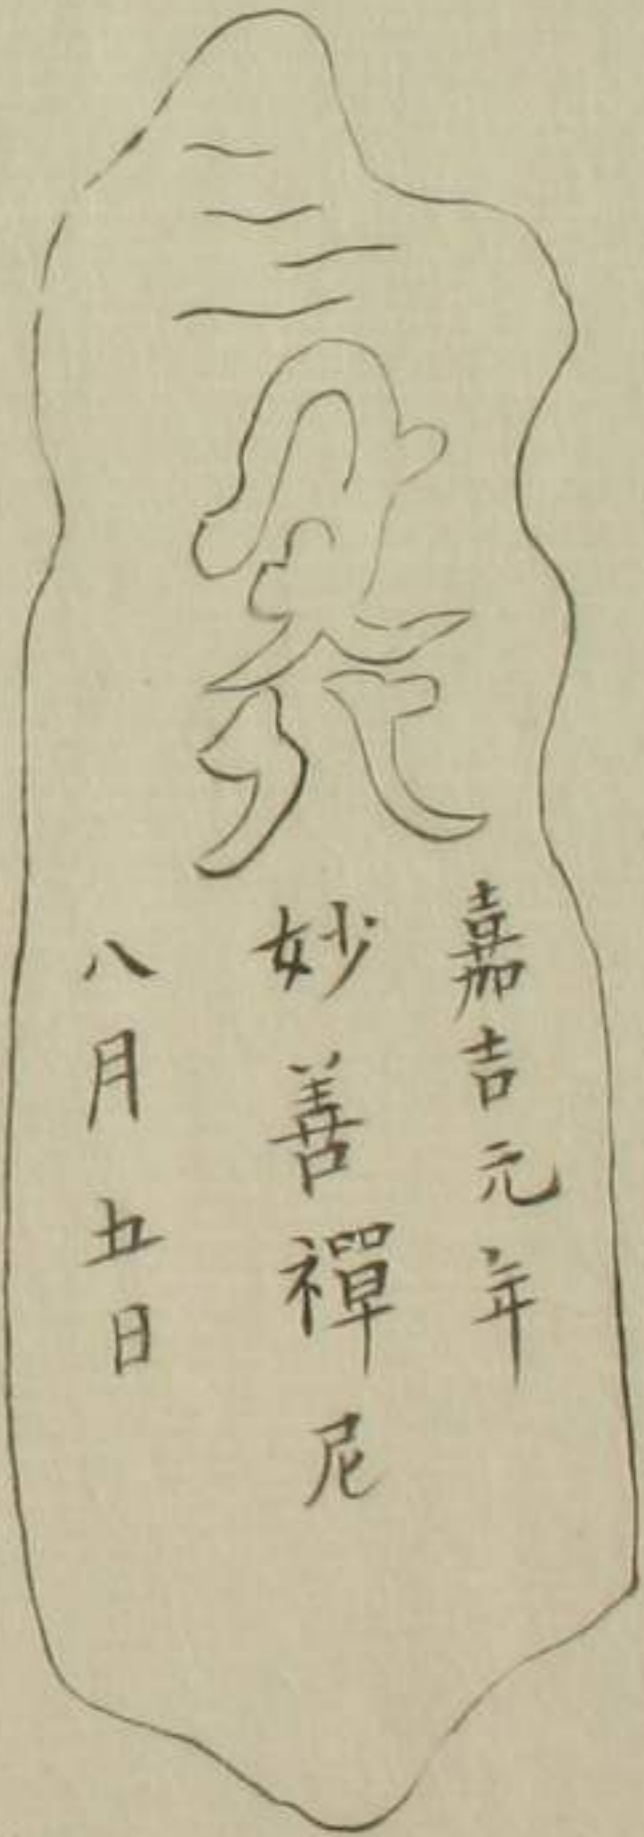 嘉吉元年
妙善禪尼
八月五日